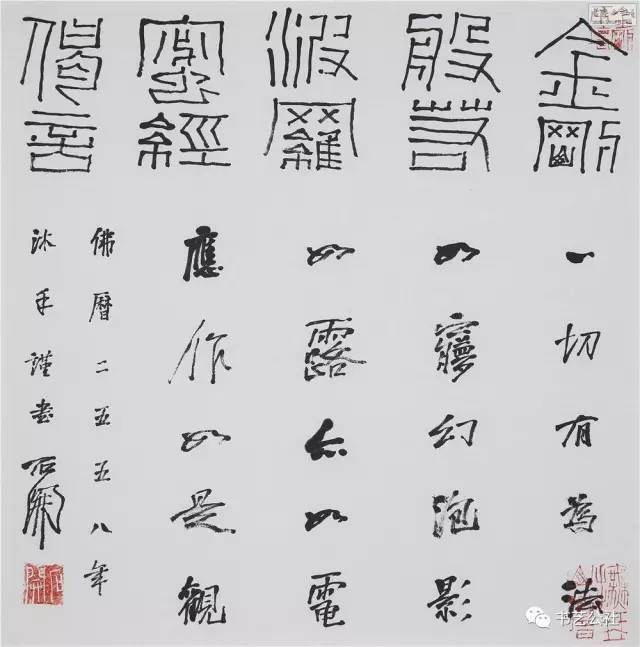 金剛
般若
波羅
蜜經
偈言
一切有為法
如夢幻泡影
如露亦如電
應作如是觀
佛曆二五五八年
沐手謹書 石開
书艺公社